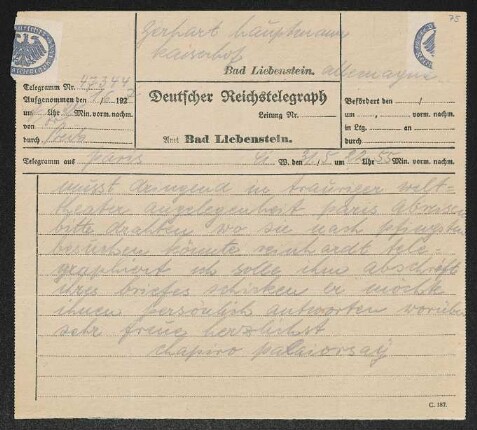 75
Gerhart Hauptmann
Kaiserhof
Bad Liebenstein. allemagne
Telegramm Nr. 47344
Aufgenommen den 192
um Uhr Min. vorm. nachm.
von
durch
Deutscher Reichstelegraph
Leitung Nr.
Amt Bad Liebenstein.
Befördert den /
um , vorm. nachm.
in Ltg. an
durch
Telegramm aus paris W. den 21/5 um 22 Uhr 55 Min. vorm. nachm.
musst dringend in trauriger welt-
theater angelegenheit paris abreisen
bitte drahten wo sie nach pfingsten
besuchen könnte reinhardt tele-
graphiert ich solle ihm abschrift
ihres briefes schicken er möchte
ihnen persönlich antworten worüber
sehr freue herzlichst
chapiro palaiorsay
C. 187.